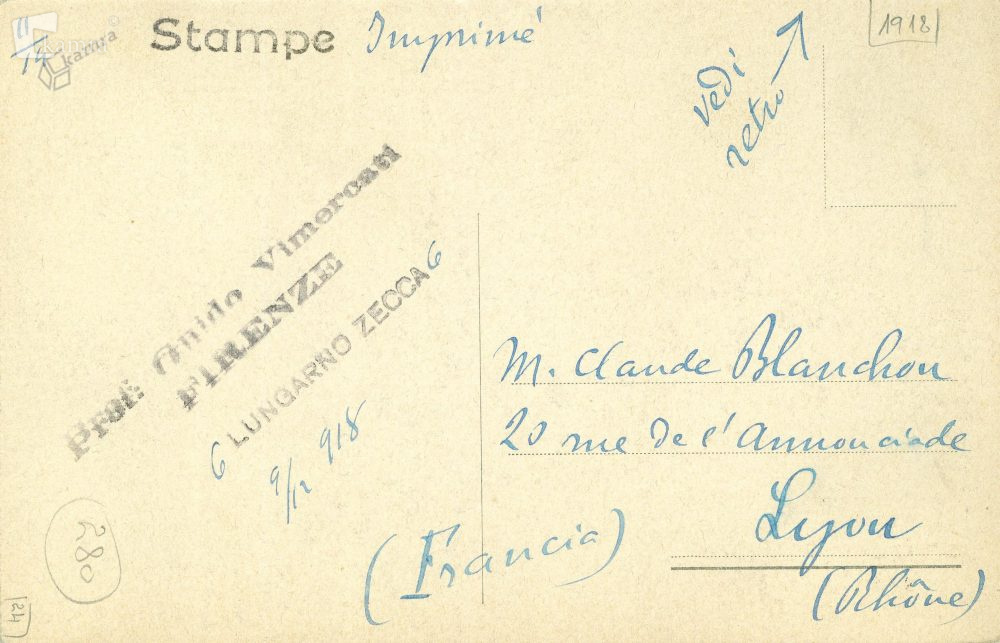 11
14
kamra
Stampe Imprimé
1918
vedi
retro
Prof. Guido Vimercati
FIRENZE
6 LUNGARNO ZECCA 6
9/12 918
M. Claude Blanchon
20 rue de l'Annonciade
Lyon
(Rhône)
(Francia)
280
24